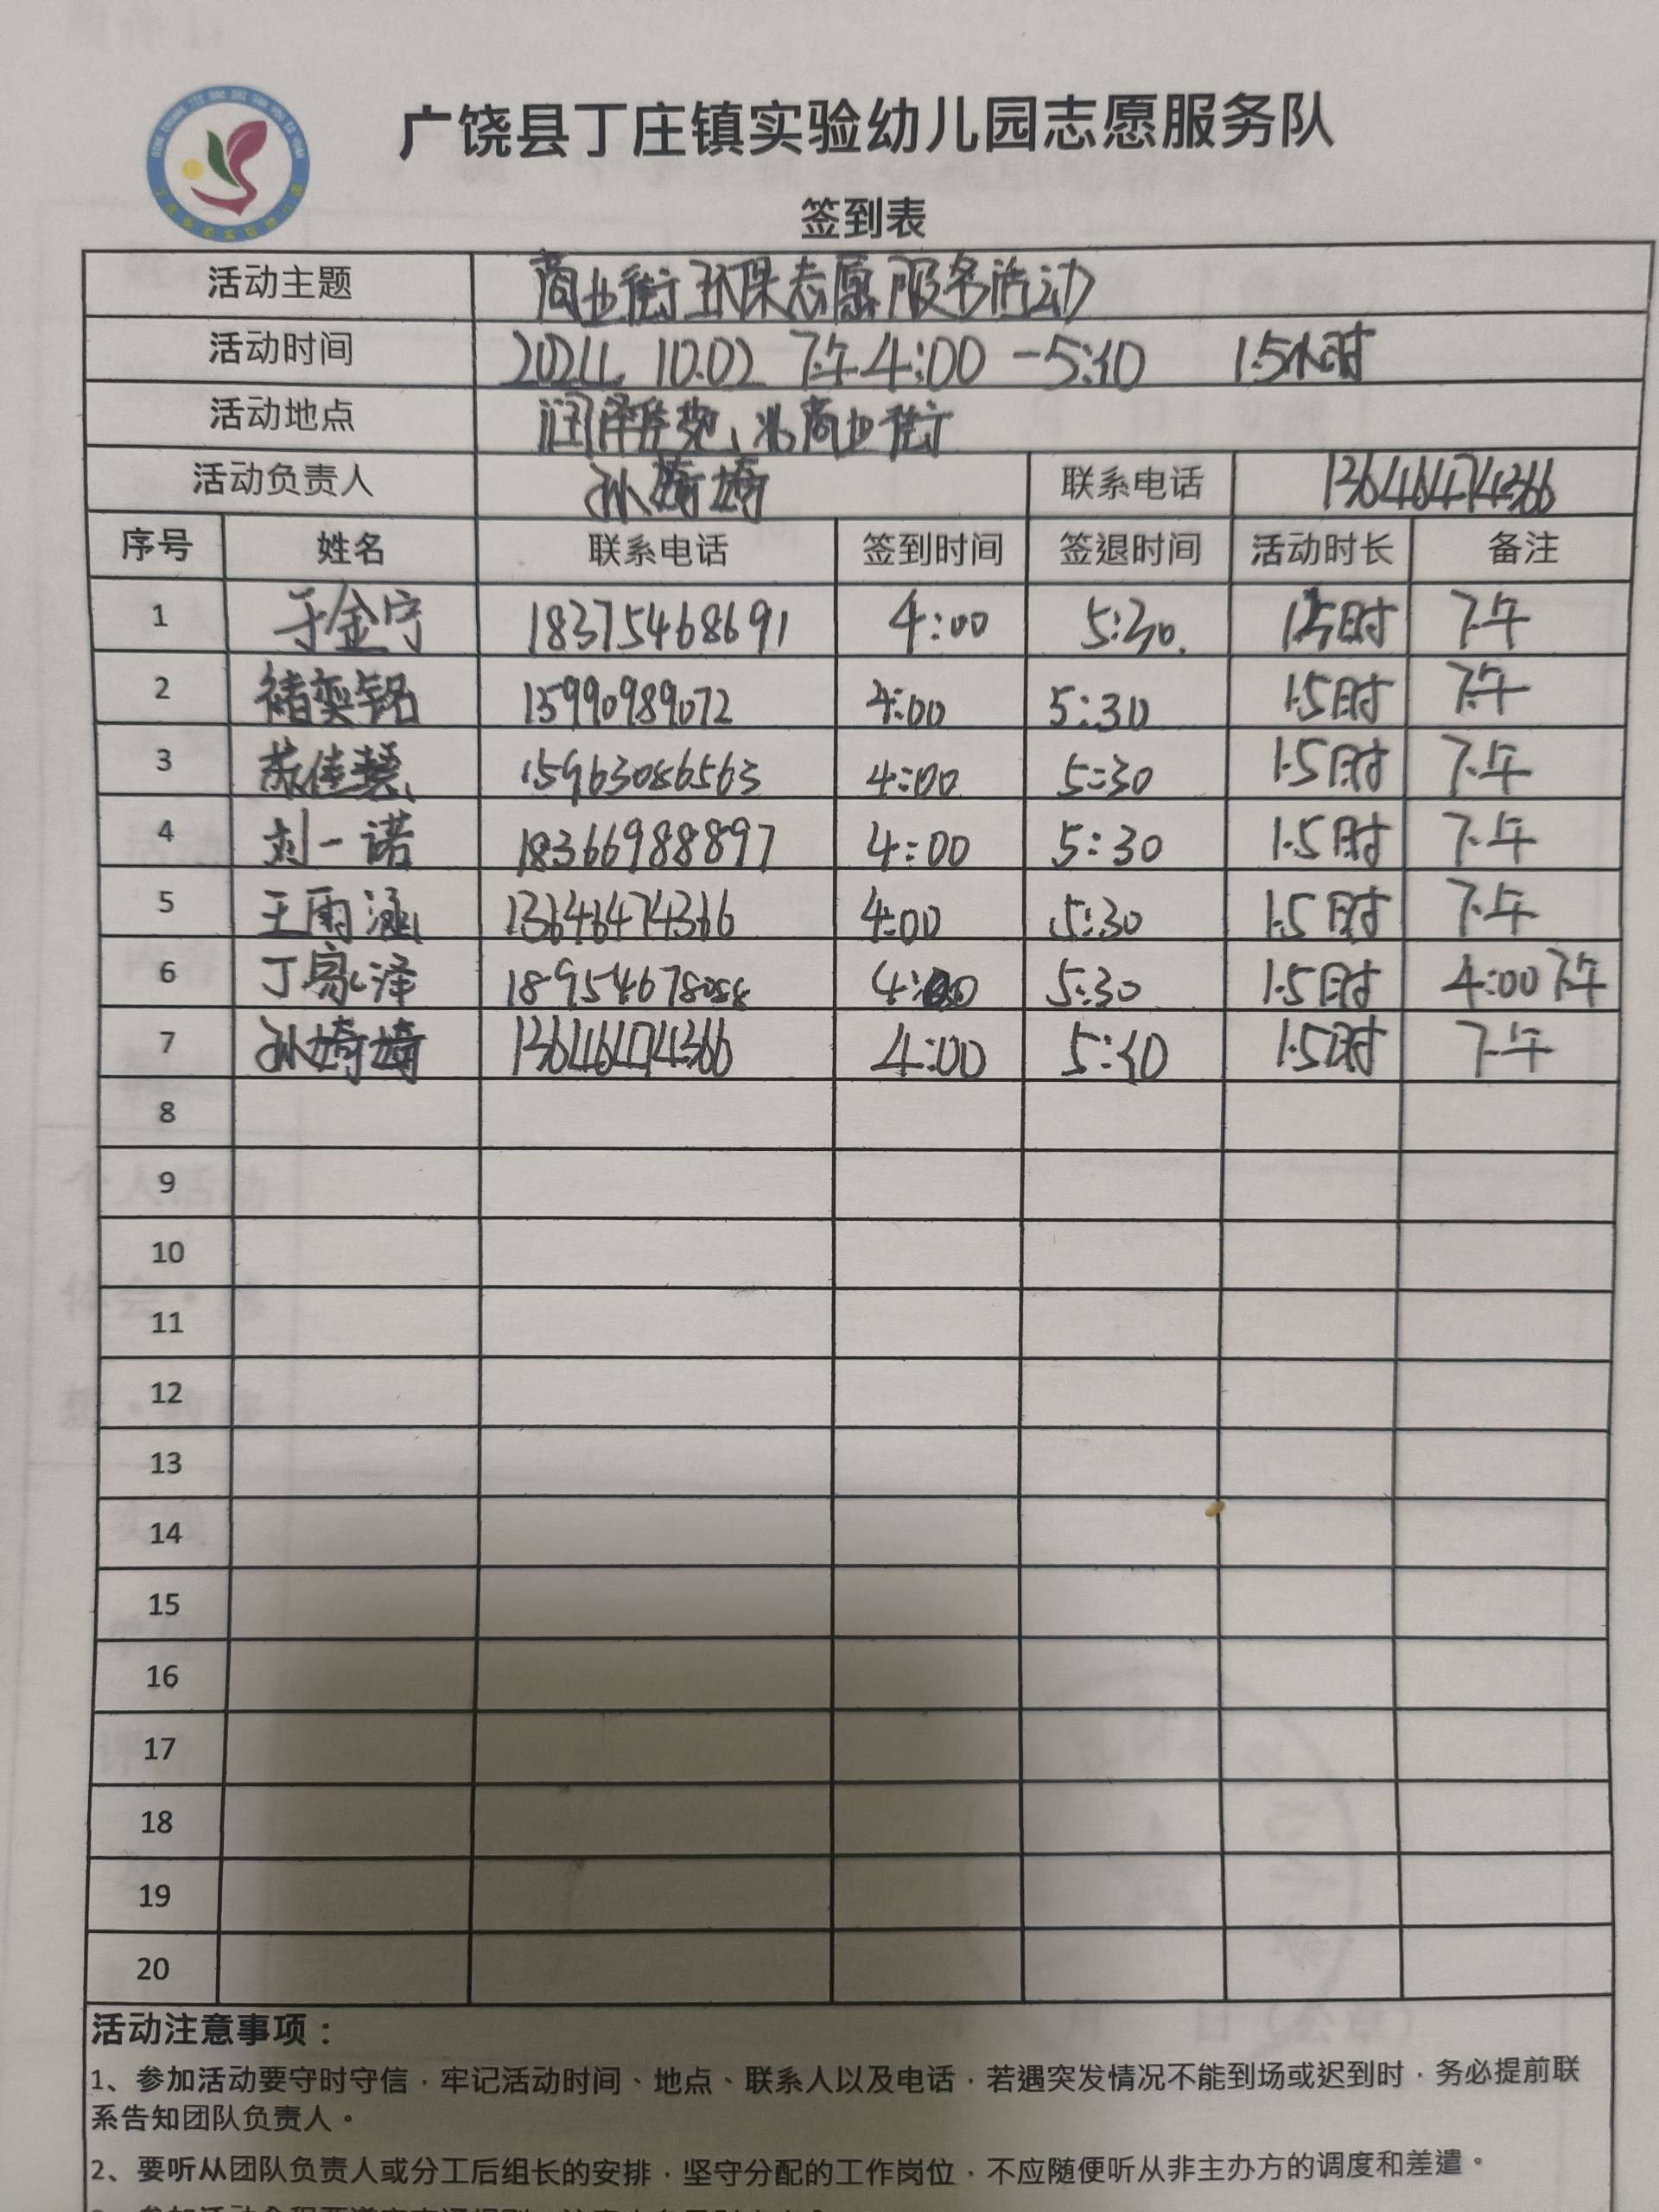 广饶县丁庄镇实验幼儿园志愿服务队
签到表
活动主题 商业街环保志愿服务活动
活动时间 2024.10.02 下午4:00-5:30 1.5小时
活动地点 商业街
活动负责人 孙婍婍 联系电话 13646474366
序号 姓名 联系电话 签到时间 签退时间 活动时长 备注
1 于金宁 18375468691 4:00 5:30. 1.5时 下午
2 褚奕铭 13990989072 4:00 5:30 1.5时 下午
3 佳慧 15963086563 4:00 5:30 1.5时 下午
4 刘一诺 18366988897 4:00 5:30 1.5时 下午
5 王雨涵 13646474366 4:00 5:30 1.5时 下午
6 丁家泽 18954678088 4:00 5:30 1.5时 4:00下午
7 孙婍婍 13646474366 4:00 5:30 1.5时 下午
8
9
10
11
12
13
14
15
16
17
18
19
20
活动注意事项：
1、参加活动要守时守信，牢记活动时间、地点、联系人以及电话，若遇突发情况不能到场或迟到时，务必提前联
系告知团队负责人。
2、要听从团队负责人或分工后组长的安排，坚守分配的工作岗位，不应随便听从非主办方的调度和差遣。